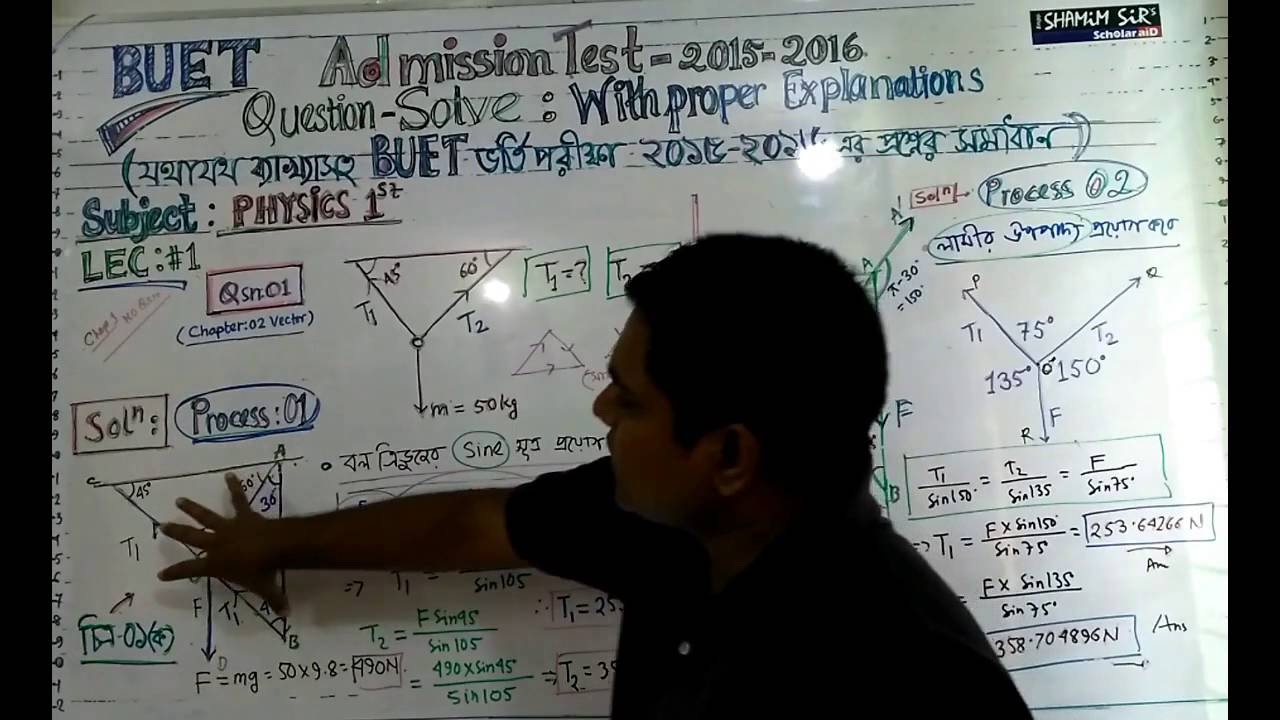 SHAMIM SIR's
ScholaraiD
BUET Admission Test-2015-2016
Question-Solve: With proper Explanations
(যথাযথ ব্যাখ্যাসহ BUET ভর্তি পরীক্ষা ২০১৫-২০১৬ এর প্রশ্নের সমাধান)
Subject: PHYSICS 1st
LEC:#1
Qsn:01
(Chapter:02 Vector)
45° 60°
T₁ T₂
T₁=? T₂
m = 50kg
Solⁿ: Process:01
বল ত্রিভুজের sine সূত্র
C 45° A 30°
T₁ F T₁ B D
চিত্র-০১(ক)
⇒ T₁ = sin105
T₂ = F Sin45/sin105
F = mg = 50×9.8 = 490N
= 490×sin45°/Sin105 ⇒ T₂ = 35
Solⁿ Process 02
লামীর উপপাদ্য প্রয়োগ করে
A' A π-30° =150°
F B
P Q
T₁ 75° T₂
135° 150°
F R
T₁/Sin150° = T₂/Sin135 = F/Sin75°
⇒ T₁ = F×Sin150°/Sin75° = 253.64266 N
Ans
= F×Sin135/Sin75°
358.704896N /Ans